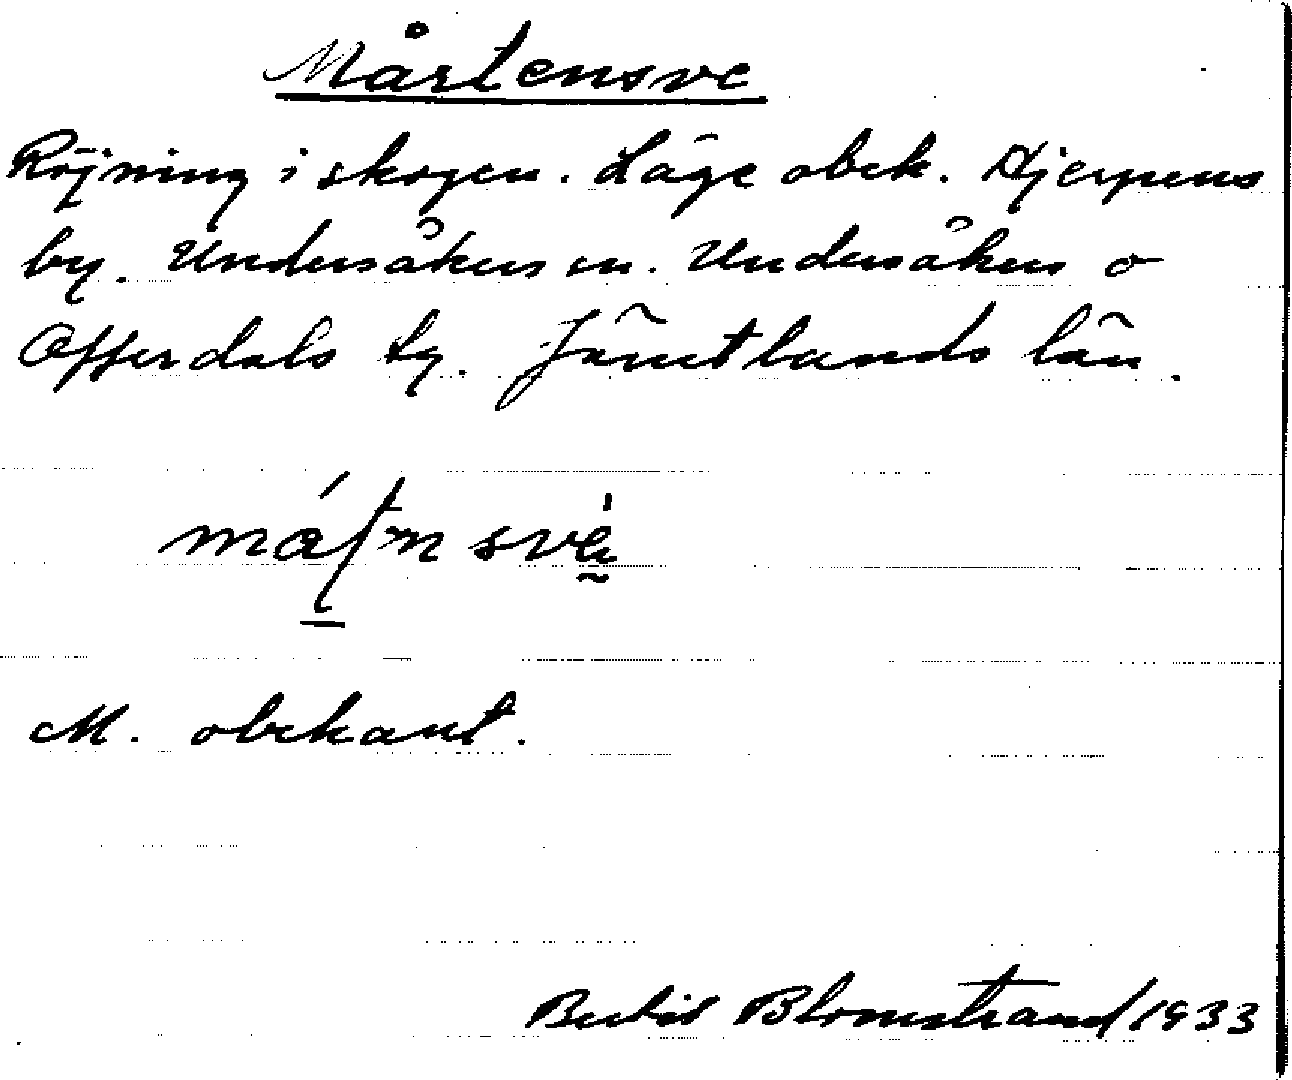 Mårtensve
Röjning i skogen. Läge obek. Hjerpens
by. Undersåkers sn. Undersåkers o
Offerdals tg. Jämtlands län.
M. obekant.
Bertil Blomstrand/1933